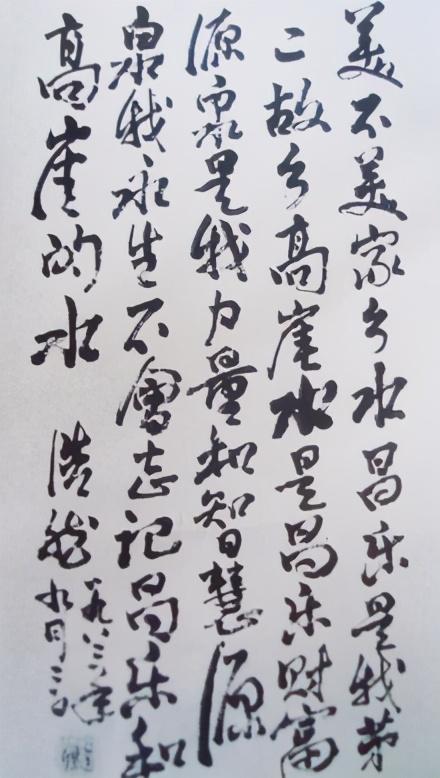 美不美家乡水昌乐是我第
二故乡高崖水是昌乐财富
源泉是我力量和智慧源
泉我永生不會忘记昌乐和
高崖的水 浩然
一九八
九月三